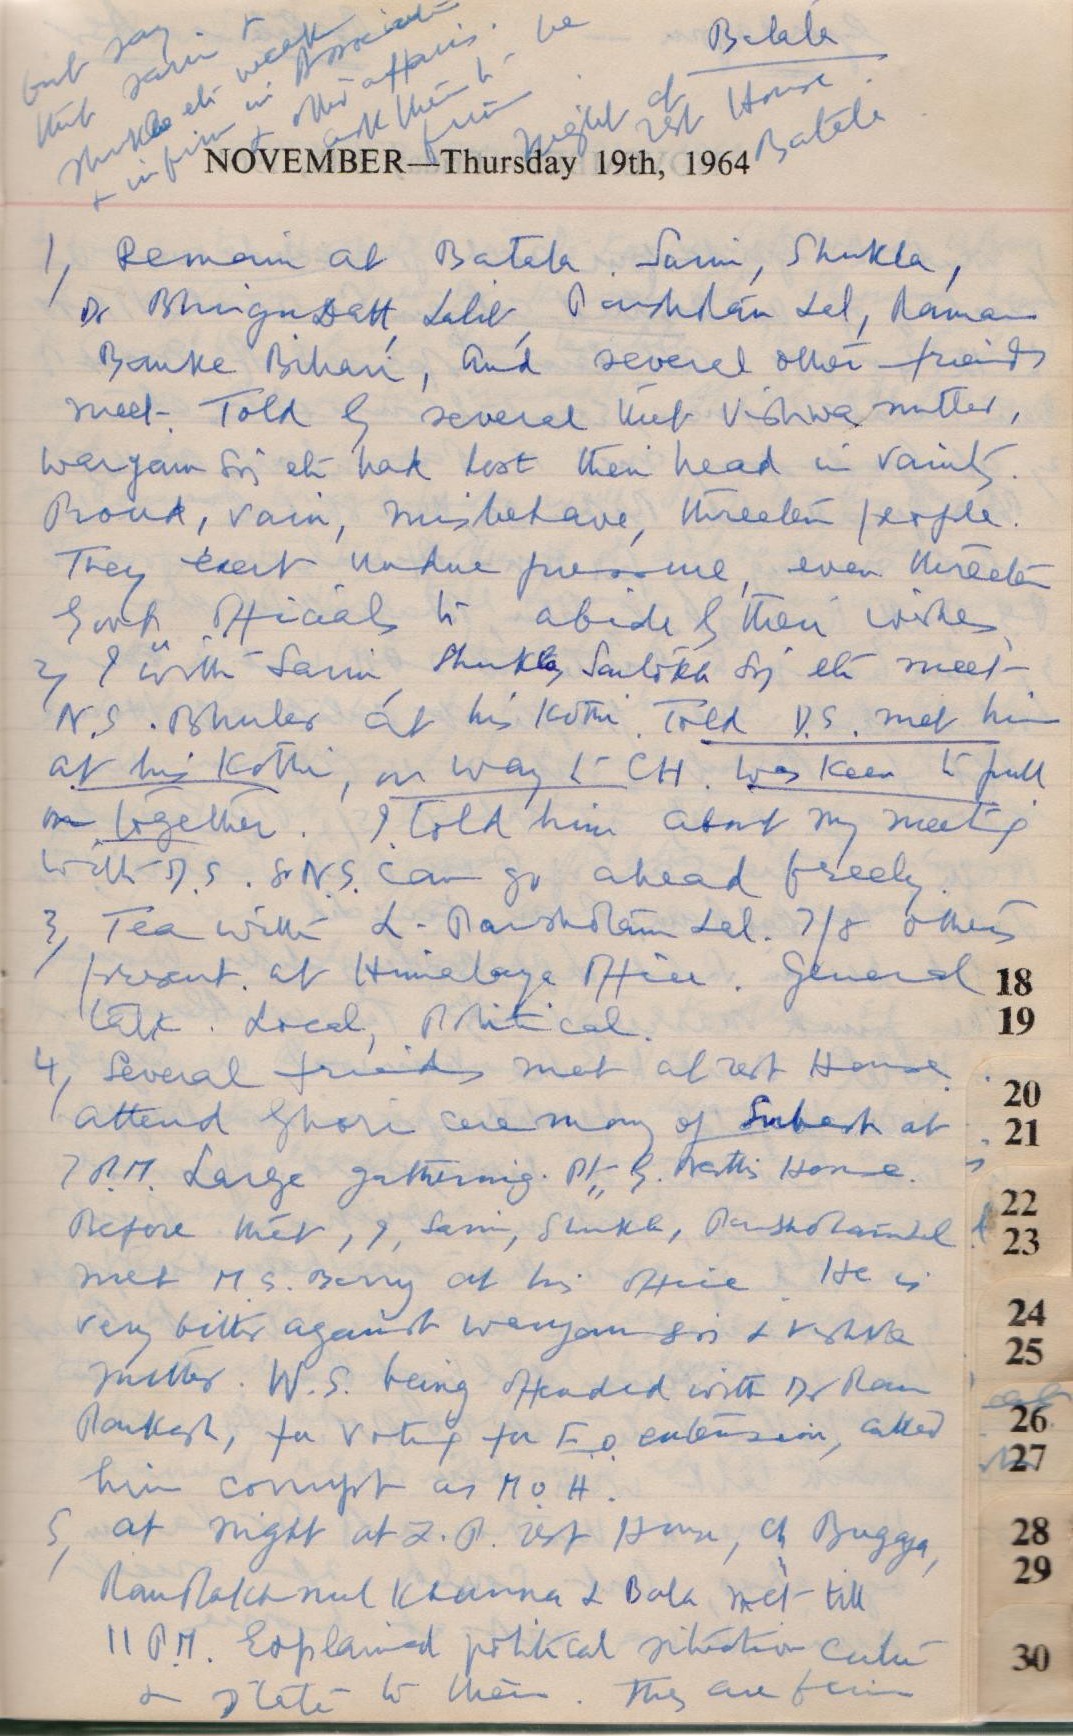 Batala
Night at
rest House
Batala
but say
that Sarin &
Shukla etc weak
& infirm in Association
& other affairs.
ask them to be
firm
NOVEMBER—Thursday 19th, 1964
1, Remain at Batala. Sarin, Shukla,
Dr Bhrigu Datt, Lalit, Parshotam Lal, Raman
Banke Bihari, and several other friends
meet. Told by several that Vishwa mitter,
Waryam Sg etc had lost their head in vanity.
Proud, vain, misbehave, threaten people.
They exert undue pressure, even threaten
Govt officials to abide by their wishes.
2, I with Sarin, Shukla, Santokh Sg etc meet
N.S. Bhuler at his Kothi. Told D.S. met him
at his Kothi, on way to CH. Was keen to pull
on together. I told him about my meeting
with D.S. So N.S. can go ahead freely.
3, Tea with L. Parshotam Lal. 7/8 others
present. at Himalaya office. General
talk. Local, Political.
4, Several friends met at rest House.
attend Ghori ceremony of Subash at
7 P.M. Large gathering. Pt. House.
Before that, I, Sarin, Shukla, Parshotam Lal
met M.S. Berry at his office. He is
very bitter against Waryam Sg & Vishwa
mitter. W.S. being offended with Dr Ram
Parkash, for voting for E.O. extension, called
him corrupt as M.O.H.
5, at night at Z.P. rest House, Ch Bugga,
Ram Rakha mul Khanna & Bala met till
11 P.M. Explained political situation Centre
& State to them. They are firm
18
19
20
21
22
23
24
25
26
27
28
29
30